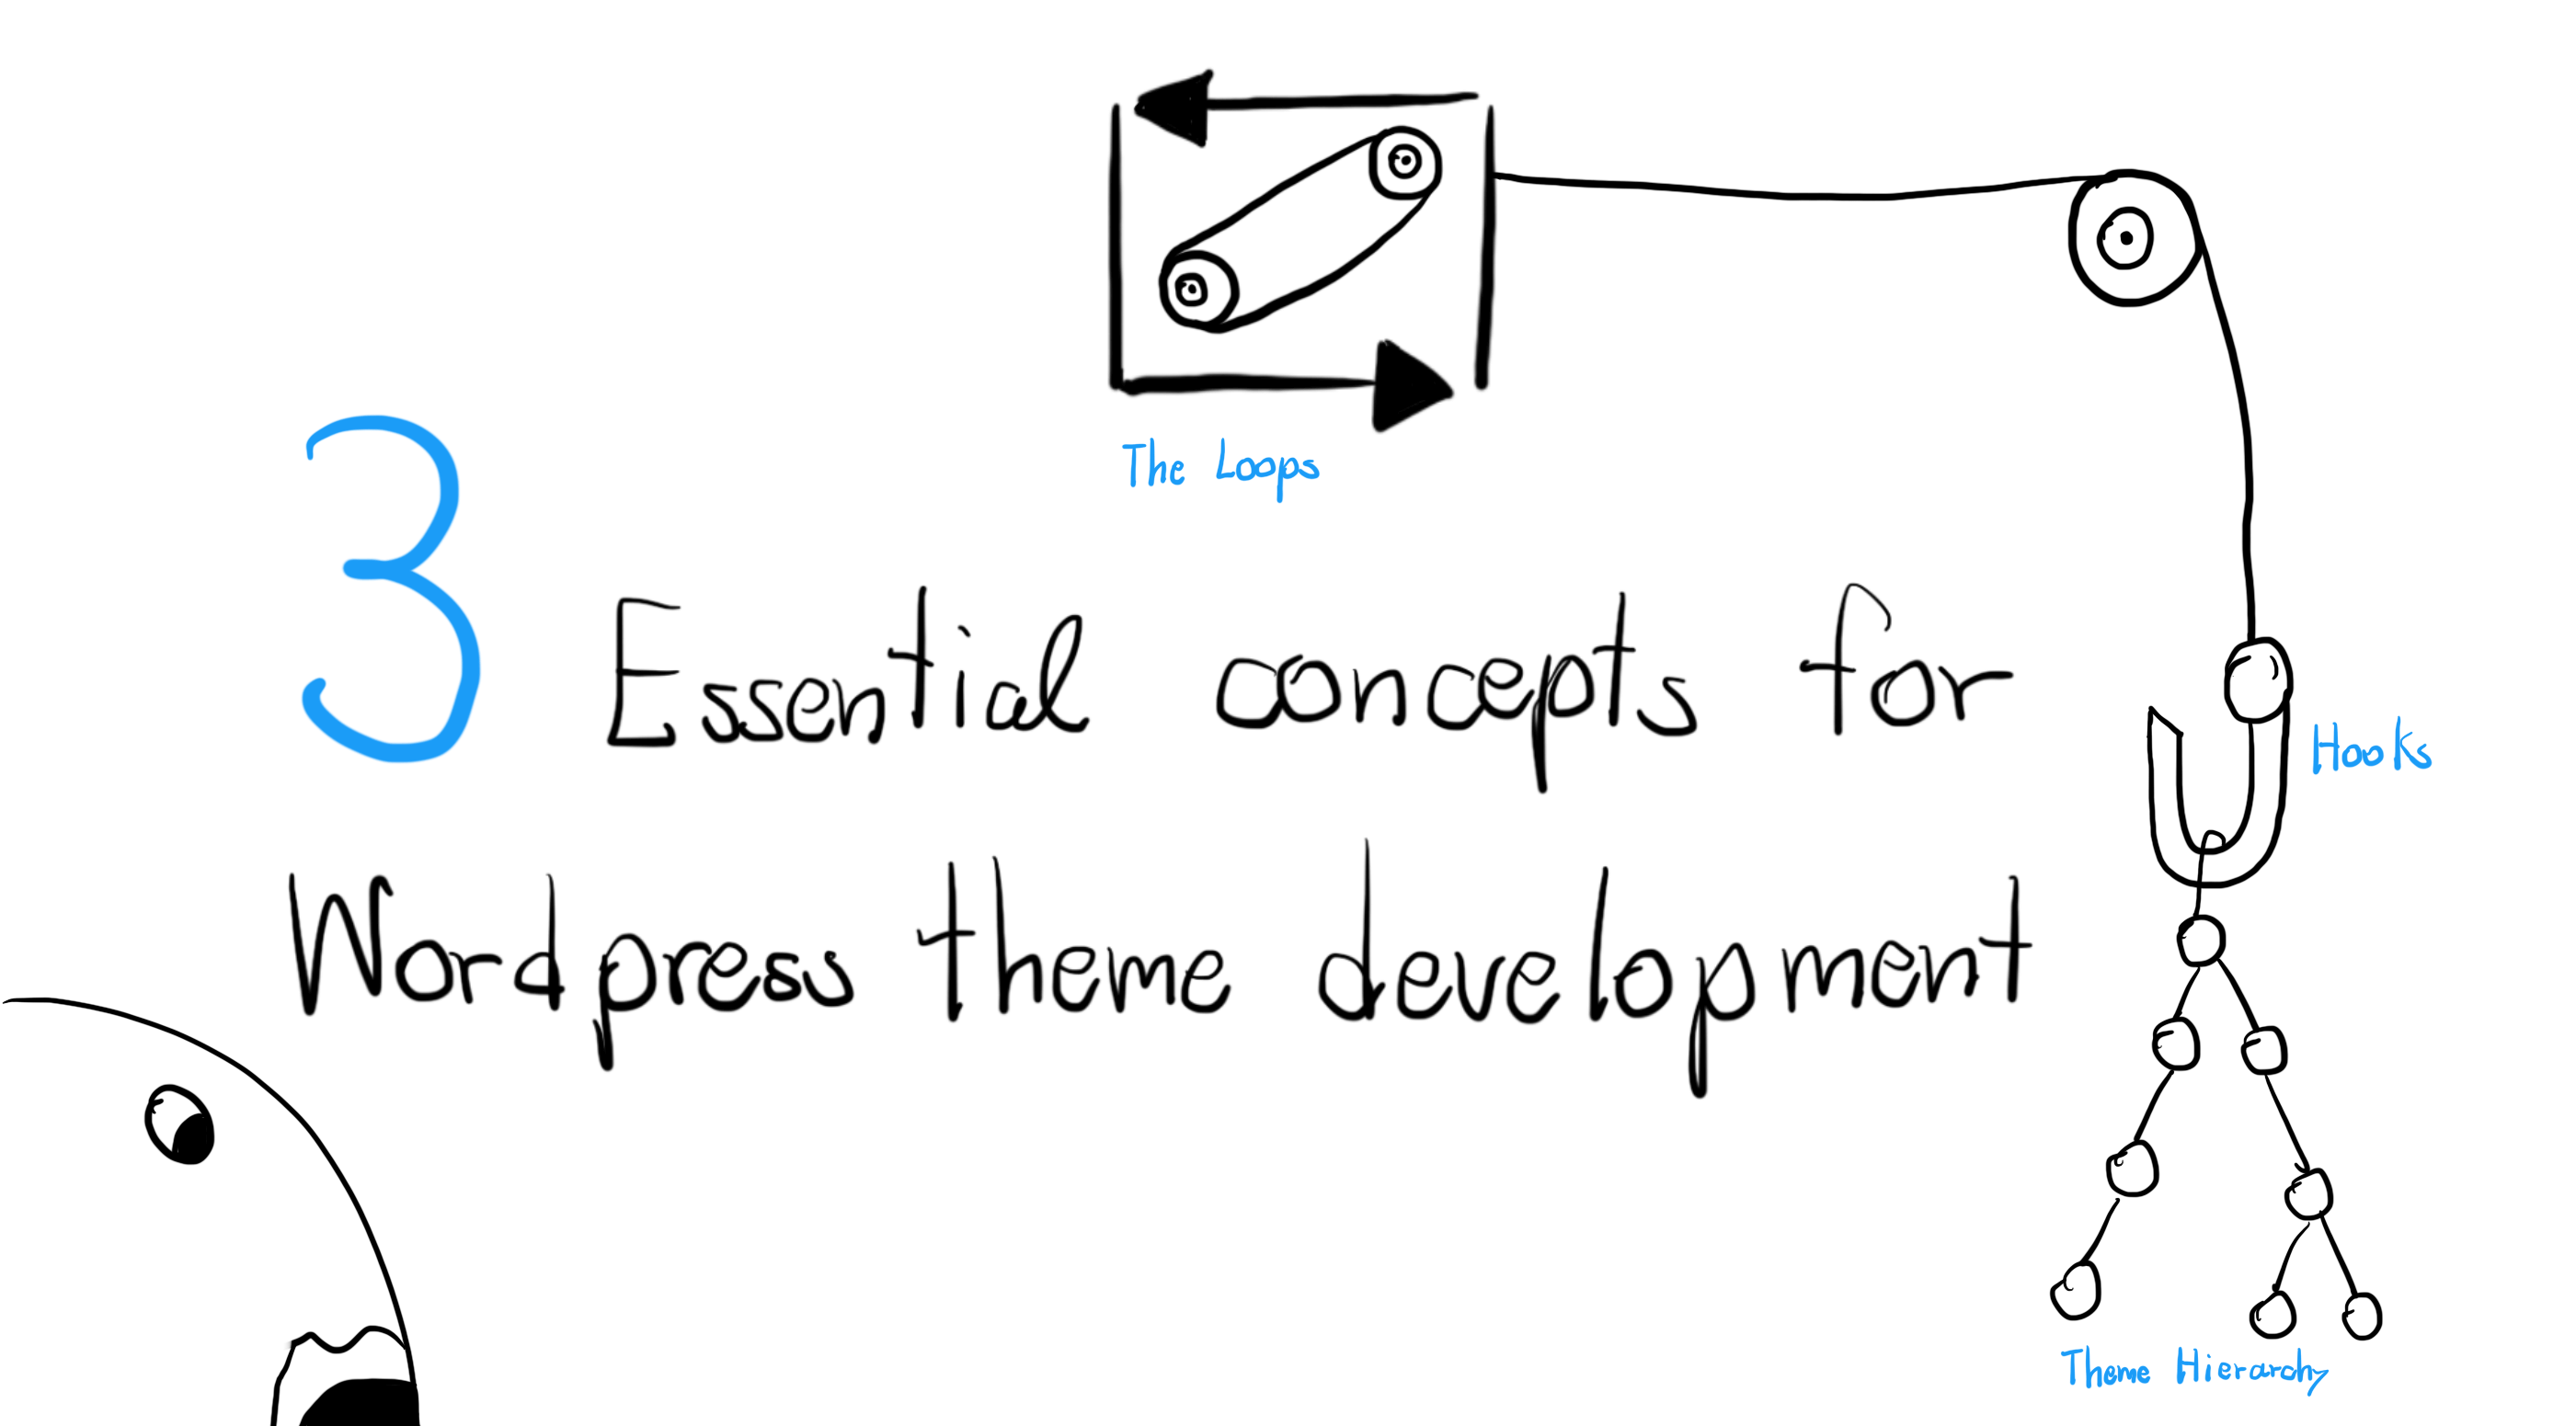 The Loops
3 Essential concepts for
Hooks
Wordpress theme development
Theme Hierarchy